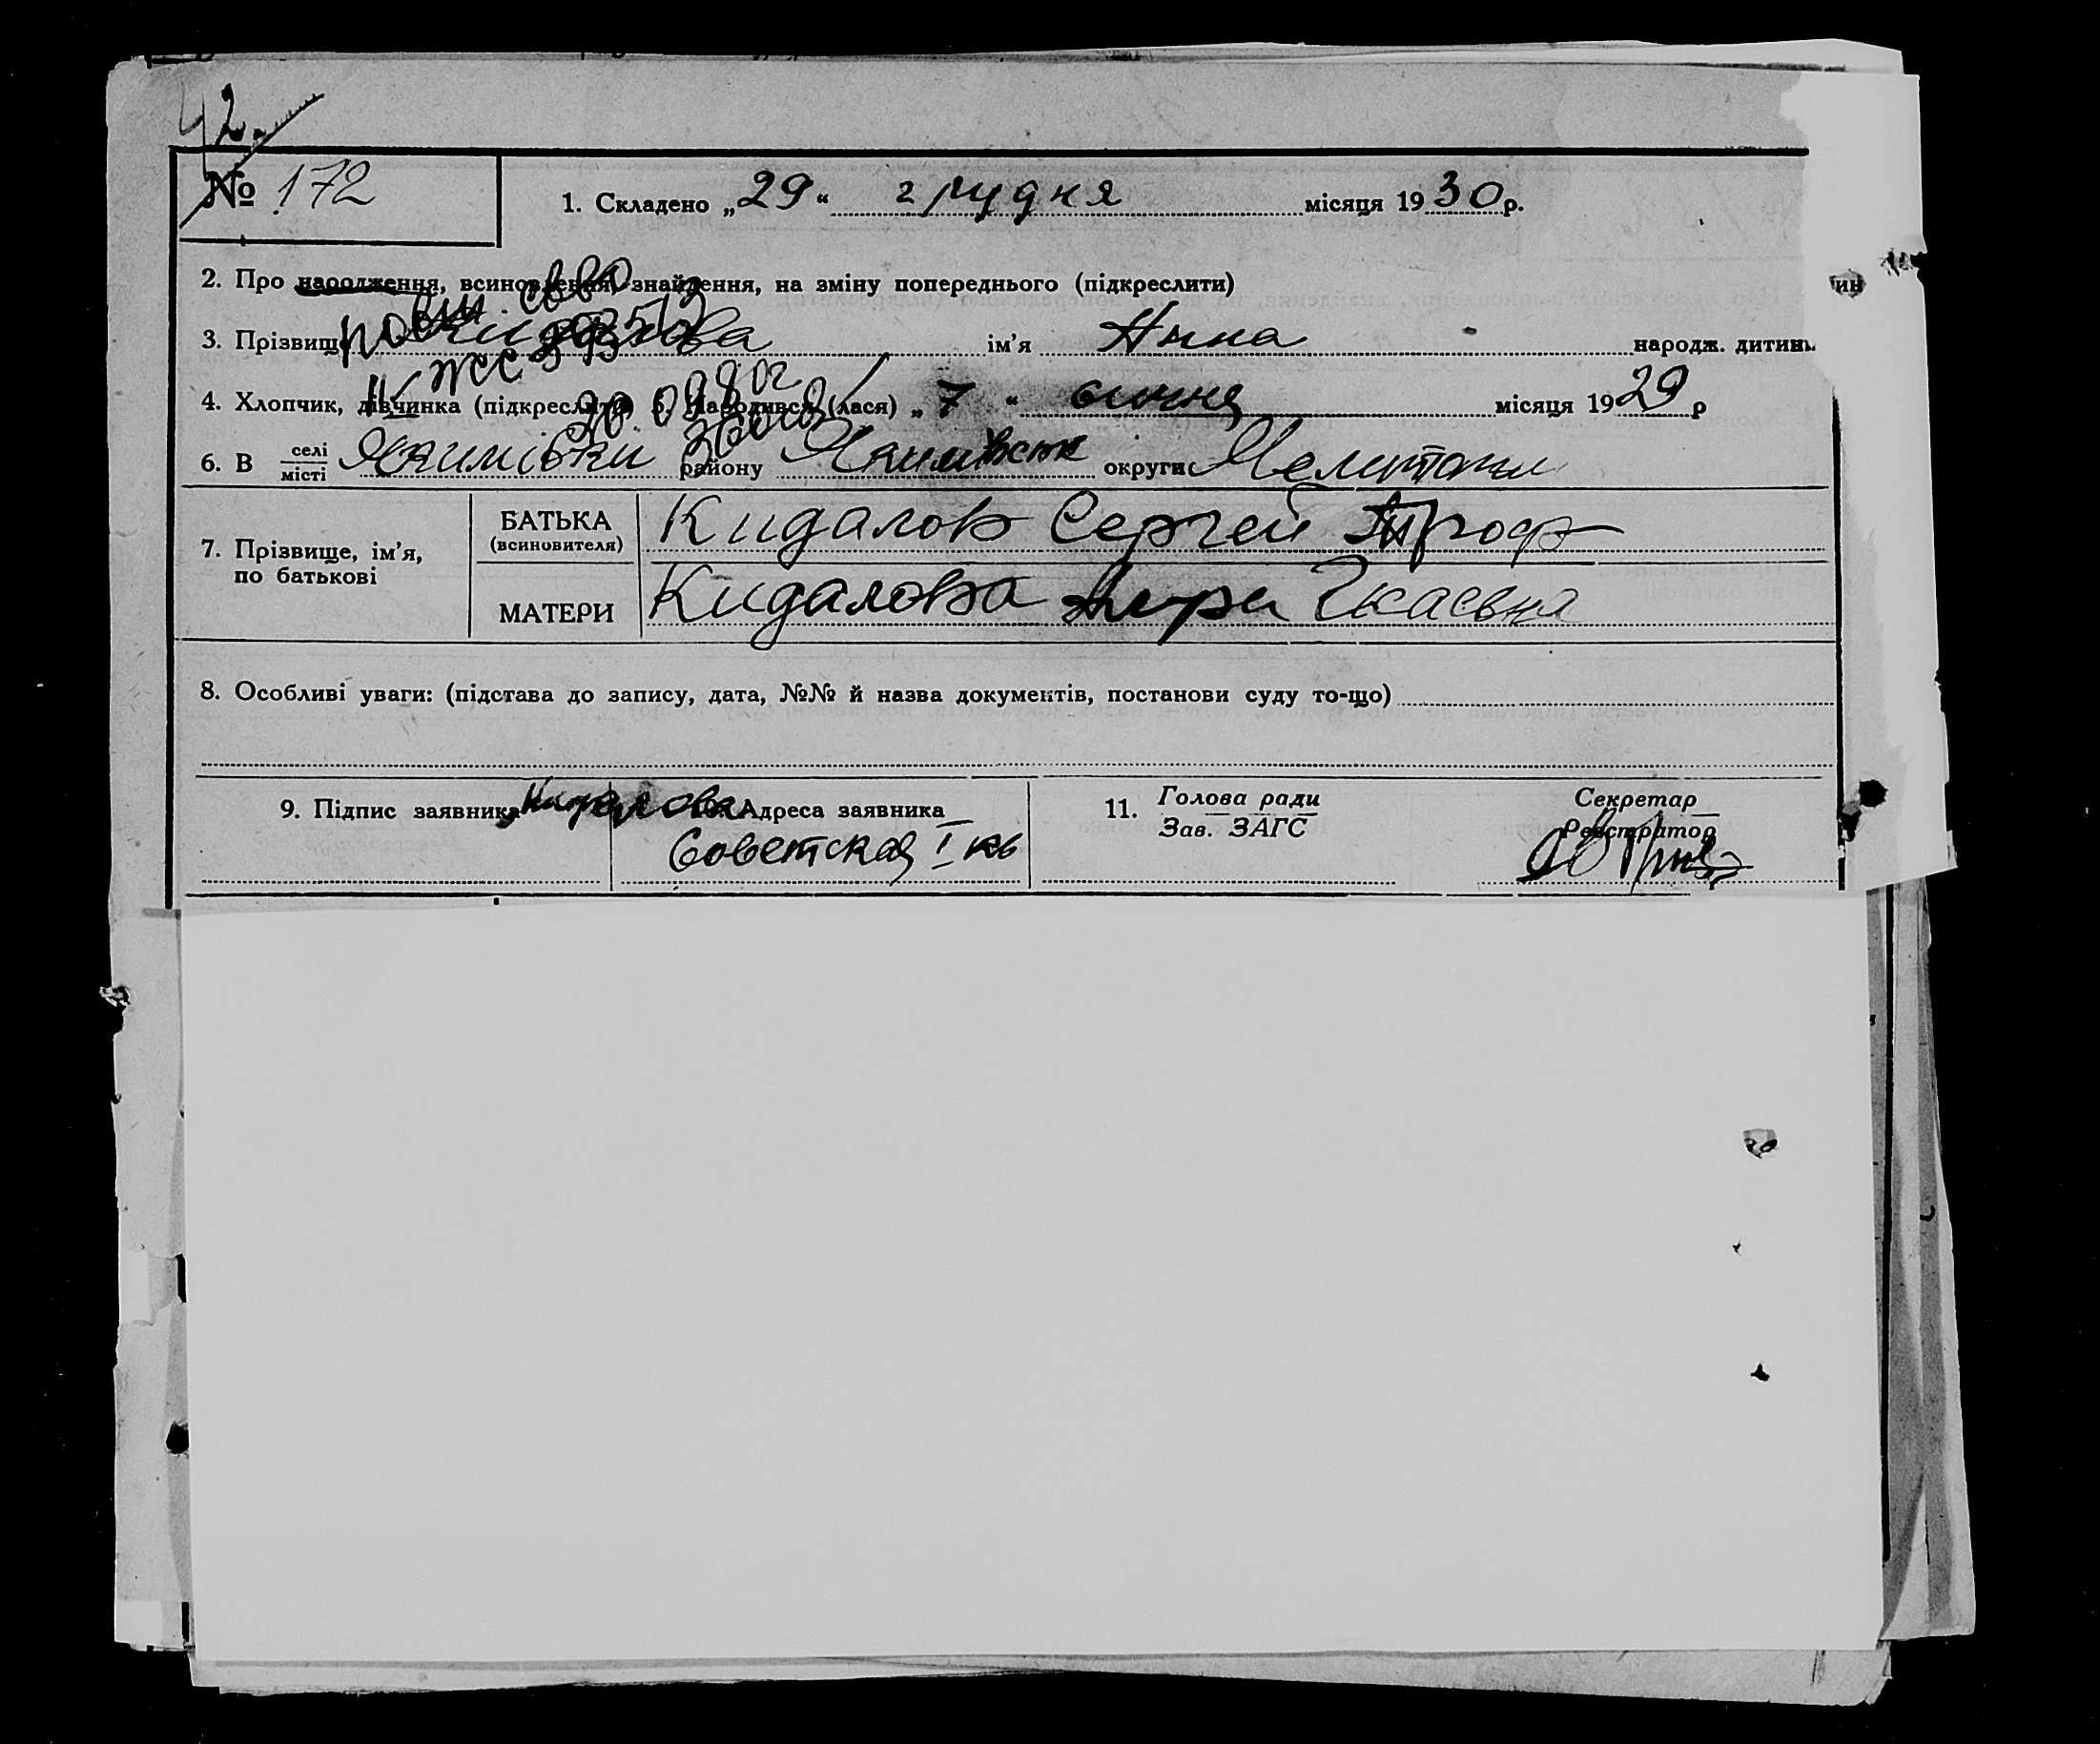 42.
№ 172
1. Складено „29“ грудня місяця 1930 р.
2. Про народження, всиновлення, знайдення, на зміну попереднього (підкреслити)
3. Прізвище Кидалова ім'я Нина народж. дитини
4. Хлопчик, дівчинка (підкреслити) 5. Народився (лася) „7“ січня місяця 1929 р
6. В селі/місті Якимівки району Якимівськ округи Мелитопол
7. Прізвище, ім'я, по батькові
БАТЬКА (всиновителя) Кидалов Сергей Троф
МАТЕРИ Кидалова
8. Особливі уваги: (підстава до запису, дата, №№ й назва документів, постанови суду то-що)
9. Підпис заявника Кидалова
Адреса заявника
Советская I кв
11. Голова ради
Зав. ЗАГС
Секретар
Реєстратор